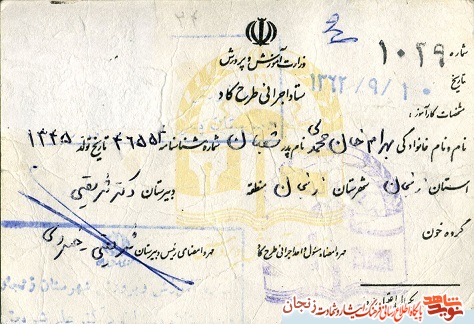 شماره ۱۰۲۹
وزارت آموزش و پرورش
تاریخ ۱۳۶۲/۹/۱۰
ستاد اجرائی طرح کاد
مشخصات کارآموز:
نام و نام خانوادگی بهرام خان محمدی نام پدر شعبان شماره شناسنامه ۴۶۵۵۲ تاریخ تولد ۱۳۴۵
استان زنجان شهرستان زنجان منطقه دبیرستان دکتر شریعتی
گروه خون
مهر و امضاء مسئول واحد اجرائی طرح کاد مهر و امضای رئیس دبیرستان
نوید شاهد
پایگاه اطلاع رسانی فرهنگ ایثار و شهادت زنجان